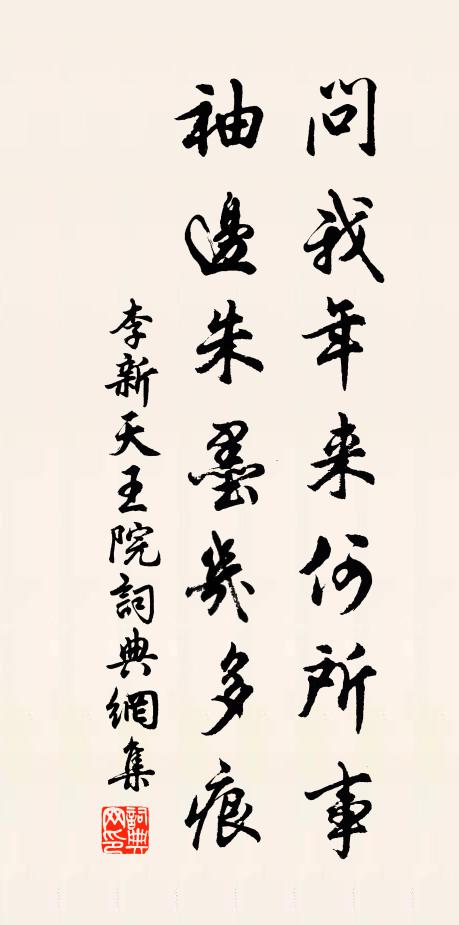 問我年来何所事
袖邊朱墨幾多痕
李新天王院詞典網集
詞典網印